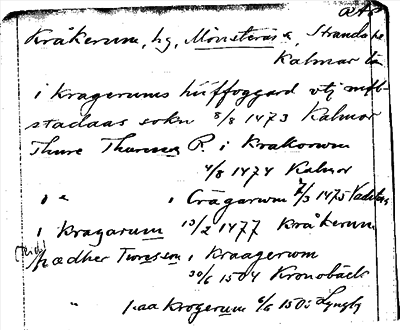 Kråkerum, hg, Mönsterås s, Stranda hd
Kalmar län
i Kragerums hüffoggard vtj
stadaas sokn 8/8 1473 Kalmar
Thure Thuresson R. i Krakorum
4/8 1474 Kalmar
i Crågarum 2/3 1475 Vadstena
i Kragarum 13/2 1477 Kråkerum
Peadher Turesson i Kraagerum
30/6 1504 Kronobäck
" i aa Krogerum 6/6 1505 Lyngby